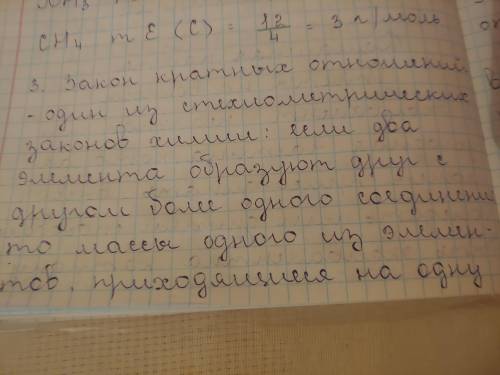 NH3
CH4 m E (C) = 12/4 = 3 г/моль
3. Закон кратных отношений.
- один из стехиометрических
законов химии: если два
элемента образуют друг с
другом более одного соединени
то массы одного из элемен-
тов, приходящиеся на одну